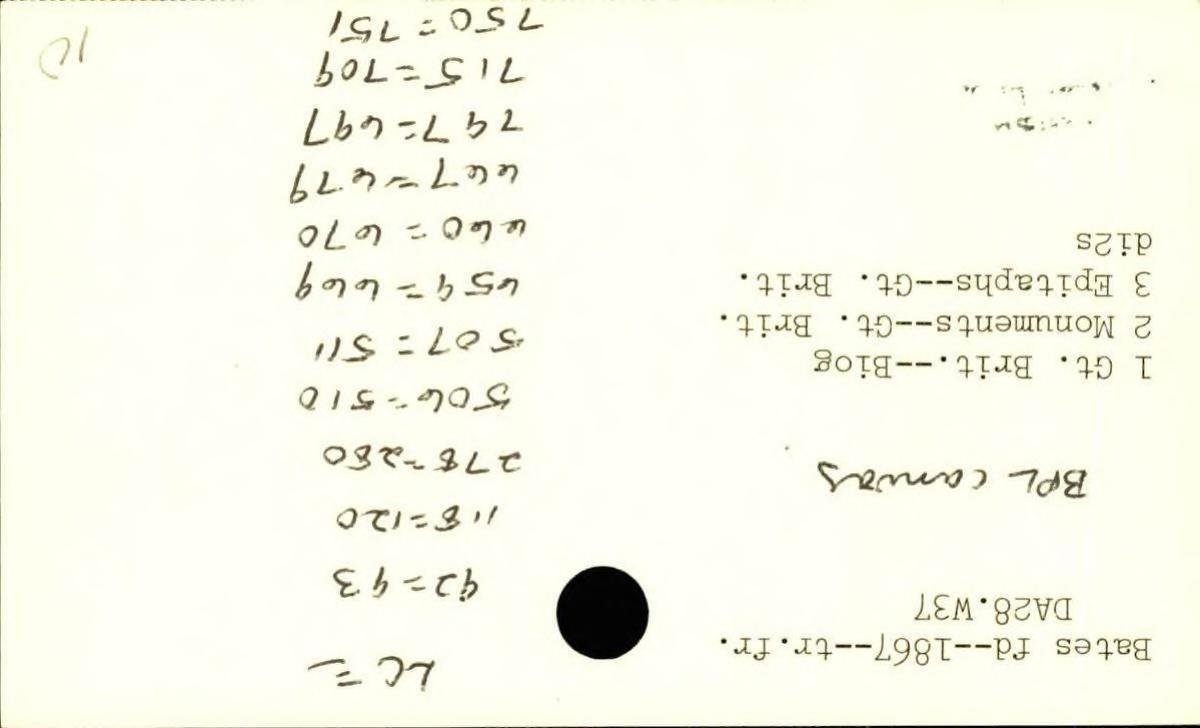 Bates fd--1867--tr.fr.
DA28.W37
BPL canvas
1 Gt. Brit.--Biog
2 Monuments--Gt. Brit.
3 Epitaphs--Gt. Brit.
di2s
LC =
92=93
118=120
278=280
506=510
507=511
659=669
660=670
667=679
797=697
715=709
750=751
10